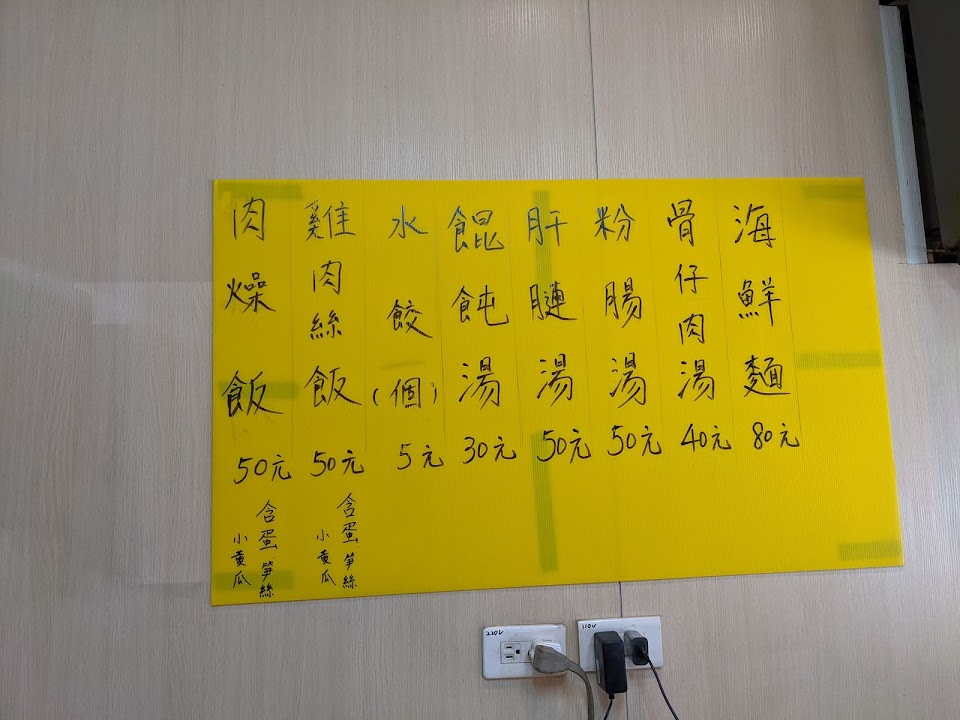 肉燥飯
50元
含蛋筍絲
小黃瓜
雞肉絲飯
50元
含蛋筍絲
小黃瓜
水餃(個)
5元
餛飩湯
30元
肝連湯
50元
粉腸湯
50元
骨仔肉湯
40元
海鮮麵
80元
220V
110V